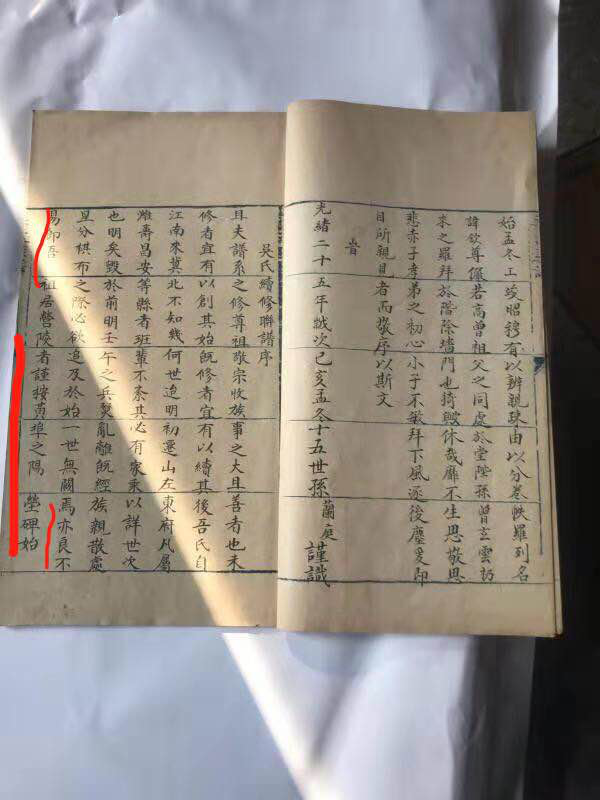 始孟冬工竣昭穆有以辨親疎由以分卷帙羅列名
諱欽尊儼若高曾祖父之同處於堂陛孫曾玄雲礽
來之羅拜於階除墻門也猗歟休哉靡不生思敬思
悲赤子孝弟之初心小子不敏拜下風逐後塵爰即
目所親見者而敬序以斯文
旹
光緒二十五年歲次己亥孟冬十五世孫蘭庭謹識
吳氏續修聯譜序
且夫譜系之修尊祖敬宗收族事之大且善者也未
修者宜有以創其始旣修者宜有以續其後吾氏自
江南來冀北不知幾何世迨明初遷山左東府凡屬
濰壽昌安等縣者班輩不紊其必有家乘以詳世次
也明矣毀於前明壬午之兵燹亂離旣經族親散處
星分棋布之際心欲追及於始一世無闕焉亦良不
易即吾祖居營陵者謹按黃埠之陽塋碑始